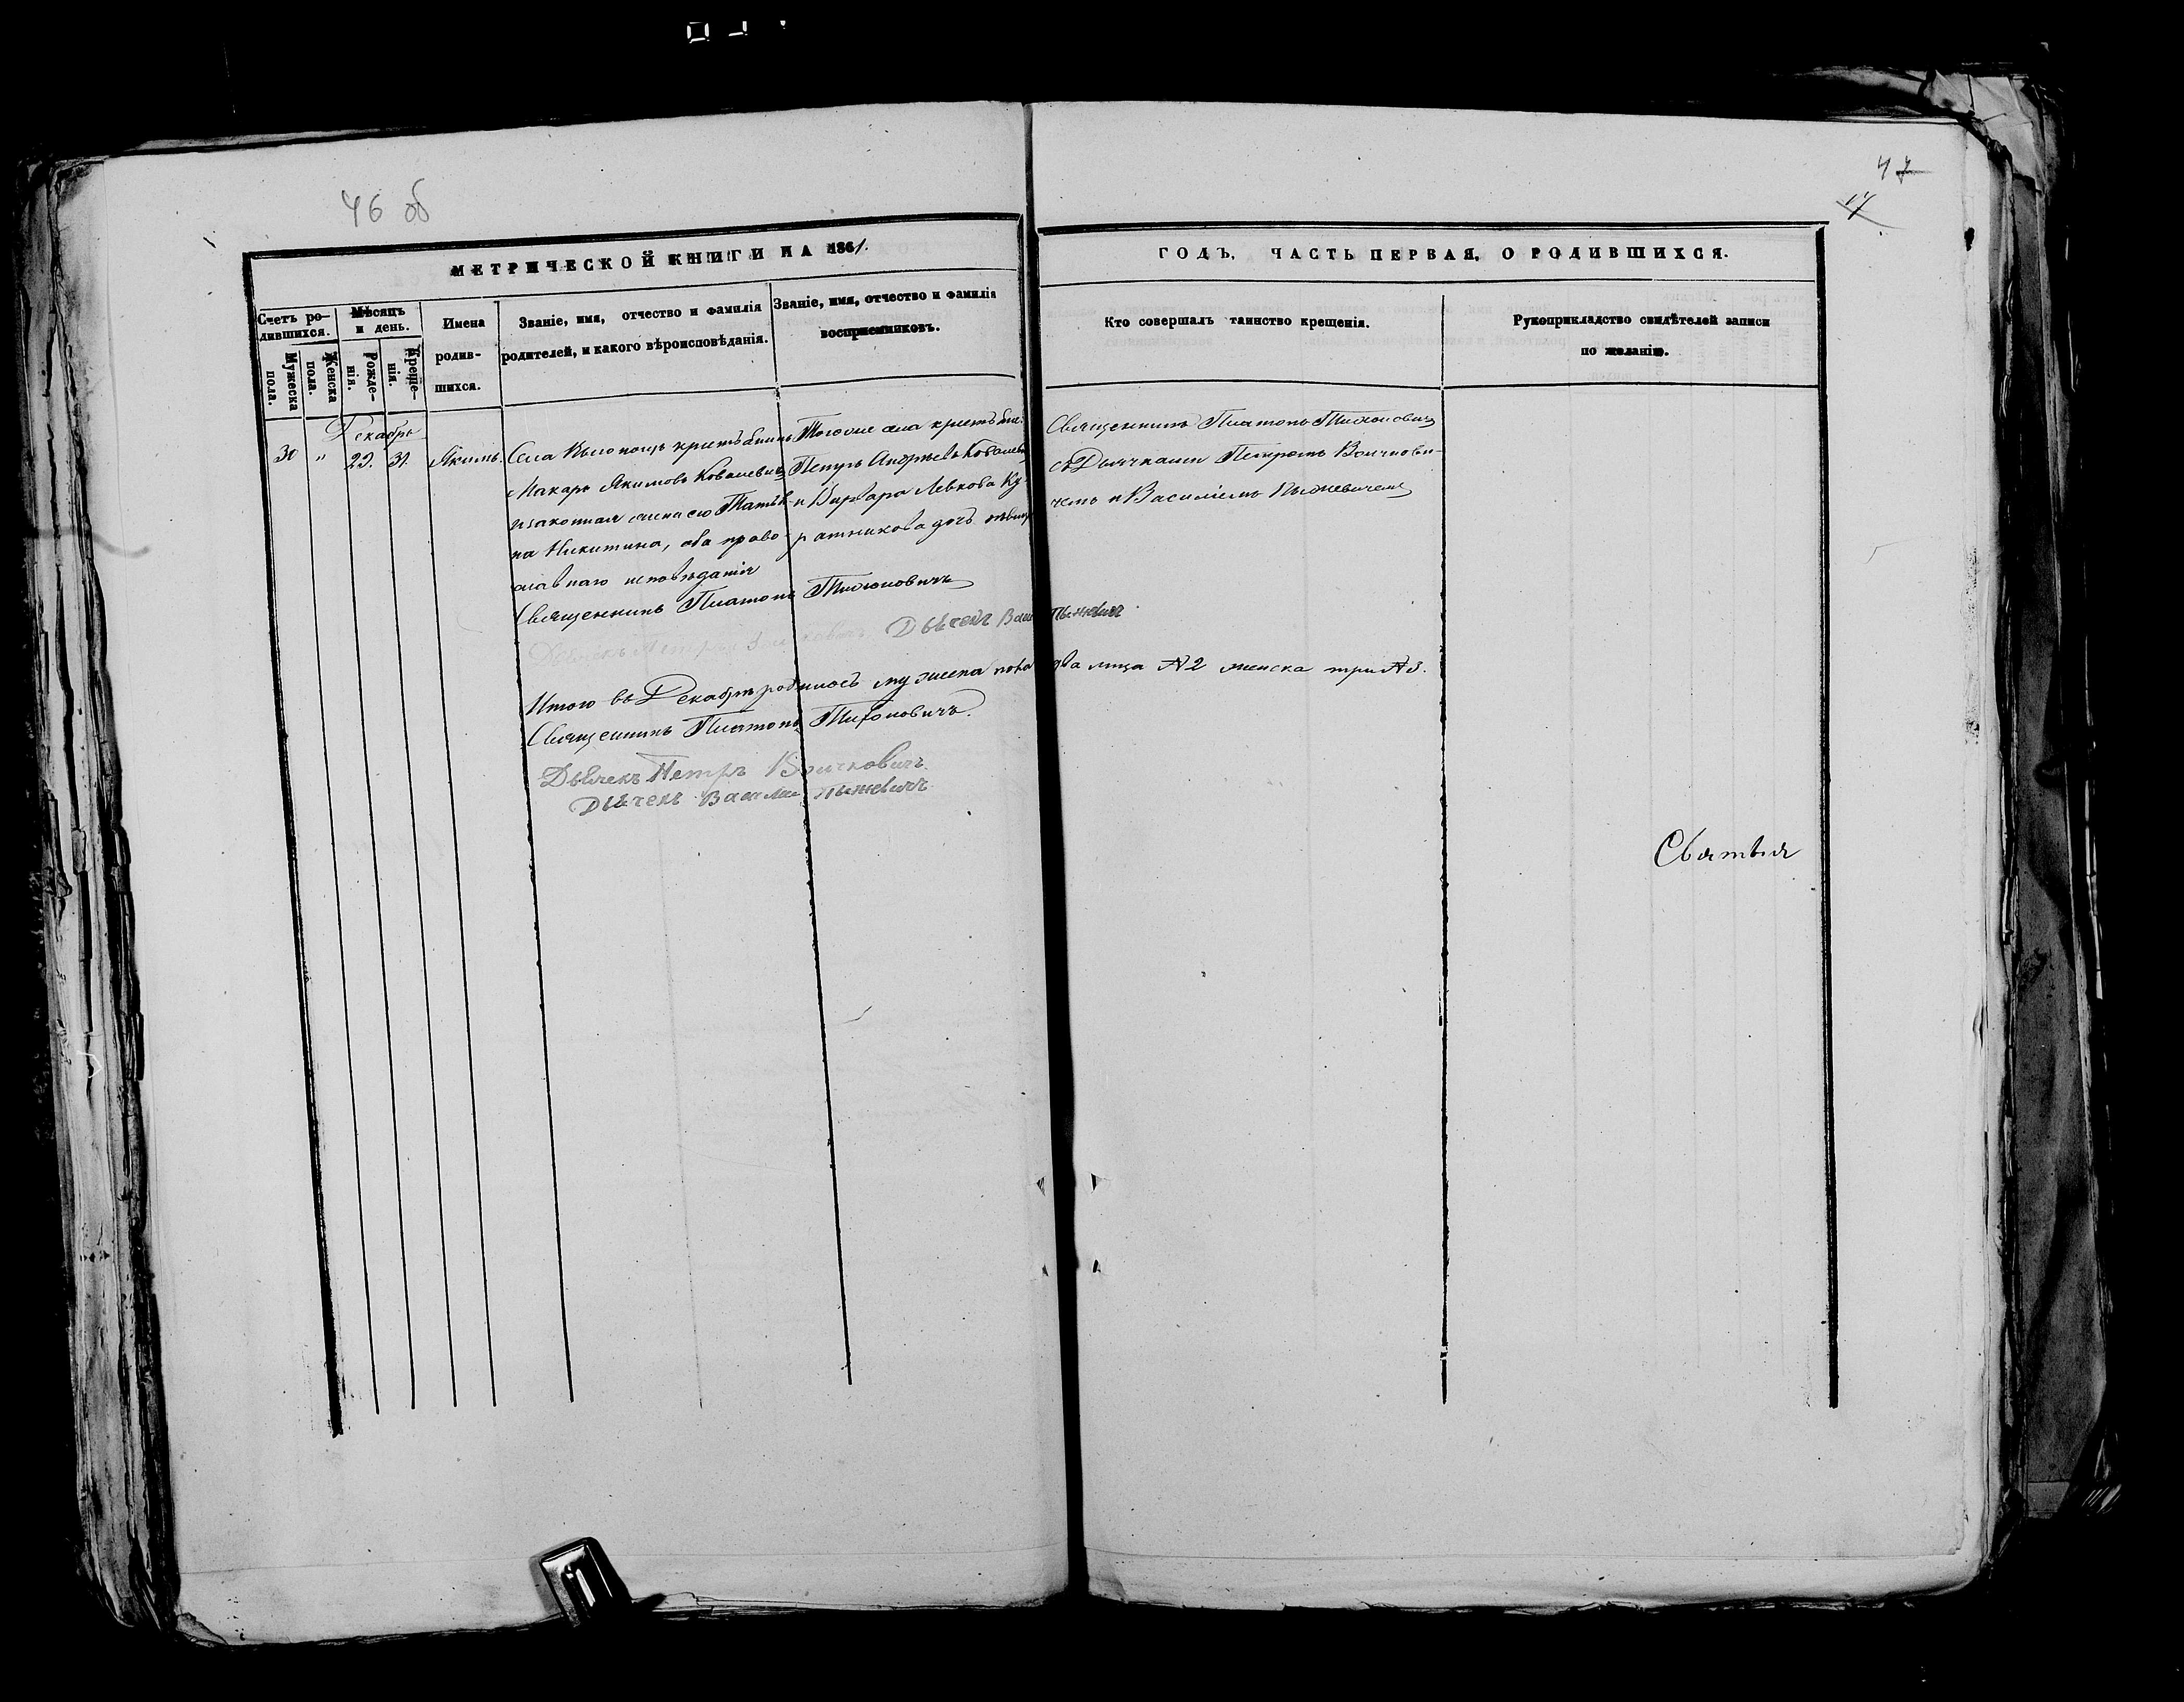 46 об
47
17
МЕТРИЧЕСКОЙ КНИГИ НА 1861.
ГОДЪ, ЧАСТЬ ПЕРВАЯ, О РОДИВШИХСЯ.
Счетъ ро-
дившихся.
Мужеска
пола.
Женска
пола.
Мѣсяцъ
и день.
Рожде-
нія.
Креще-
нія.
Имена
родив-
шихся.
Званіе, имя, отчество и фамилія
родителей, и какого вѣроисповѣданія.
Званіе, имя, отчество и фамилія
воспріемниковъ.
Кто совершалъ таинство крещенія.
Рукоприкладство свидѣтелей записи
по желанію.
Декабрь
30 " 29. 31. Якимъ.
Села крестьянинъ
Макаръ Якимовъ Ковалевичъ
и законная жена его Татья-
на Никитина, оба право-
славнаго исповѣданія
Тогоже села крестьян.
Петръ Андреевъ Ковалевичъ
и Варвара Левкова Ку-
ратникова дочь дѣвица
Священникъ Платонъ Тихоновичъ
съ Дьячками Петромъ Воичкови-
чемъ и Василіемъ Пыжевичемъ
Священникъ Платонъ Тихоновичъ
Дьячекъ Васи Пыжевичъ
Итого въ Декабрѣ родилось мужеска пола два лица №2 женска три №3.
Священникъ Платонъ Тихоновичъ.
Дьячекъ Петръ Воичковичъ
Дьячекъ Васили Пыжевичъ
Святыя